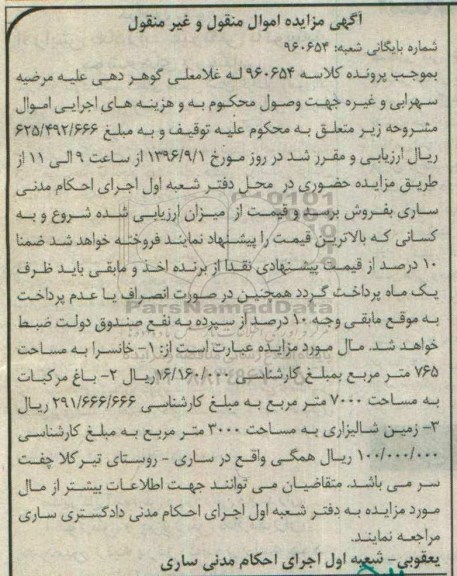 آگهی مزایده اموال منقول و غیر منقول
شماره بایگانی شعبه: ۹۶۰۶۵۴
بموجب پرونده کلاسه ۹۶۰۶۵۴ لـه غلامعلی گوهر دهی علیـه مرضیه
سـهرابی و غیـره جهـت وصول محکـوم به و هزینـه هـای اجرایی امـوال
مشـروحه زیـر متعلـق به محکوم علیـه توقیـف و به مبلـغ ۶۲۵/۴۹۲/۶۶۶
ریـال ارزیابـی و مقـرر شـد در روز مـورخ ۱۳۹۶/۹/۱ از ساعت ۹ الـی ۱۱ از
طریـق مزایـده حضـوری در محـل دفتـر شـعبه اول اجرای احکام مدنـی
سـاری بفـروش برسـد و قیمـت از میـزان ارزیابـی شـده شـروع و بـه
کسانی کـه بالاتریـن قیمـت را پیشـنهاد نماینـد فروختـه خواهد شـد ضمنا
۱۰ درصـد از قیمـت پیشـنهادی نقـدا از برنـده اخـذ و مابقـی بایـد ظـرف
یـک مـاه پرداخـت گـردد همچنیـن در صـورت انصـراف یـا عـدم پرداخـت
به موقع مابقـی وجـه ۱۰ درصـد از سـپرده بـه نفـع صنـدوق دولـت ضبـط
خواهـد شـد. مـال مـورد مزایـده عبـارت اسـت از: ۱- خانسـرا بـه مسـاحت
۷۶۵ متـر مربـع بمبلـغ کارشناسـی ۱۶/۱۶۰/۰۰۰ریـال ۲- بـاغ مرکبـات
بـه مسـاحت ۷۰۰۰ متـر مربـع بـه مبلـغ کارشناسـی ۲۹۱/۶۶۶/۶۶۶ ریـال
۳- زمیـن شـالیزاری بـه مسـاحت ۳۰۰۰ متـر مربـع بـه مبلـغ کارشناسـی
۱۰۰/۰۰۰/۰۰۰ ریـال همگـی واقـع در سـاری - روسـتای تیـرکلا چفـت
سـر مـی باشـد. متقاضیـان مـی تواننـد جهـت اطلاعـات بیشـتر از مـال
مـورد مزایـده بـه دفتـر شـعبه اول اجـرای احـکام مدنـی دادگسـتری سـاری
مراجعـه نماینـد.
یعقوبی- شعبه اول اجرای احکام مدنی ساری
ParsNamadData